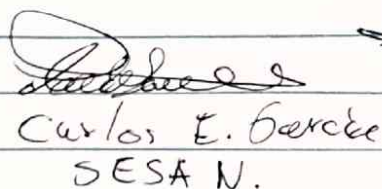 Carlos E. García
SESA N.